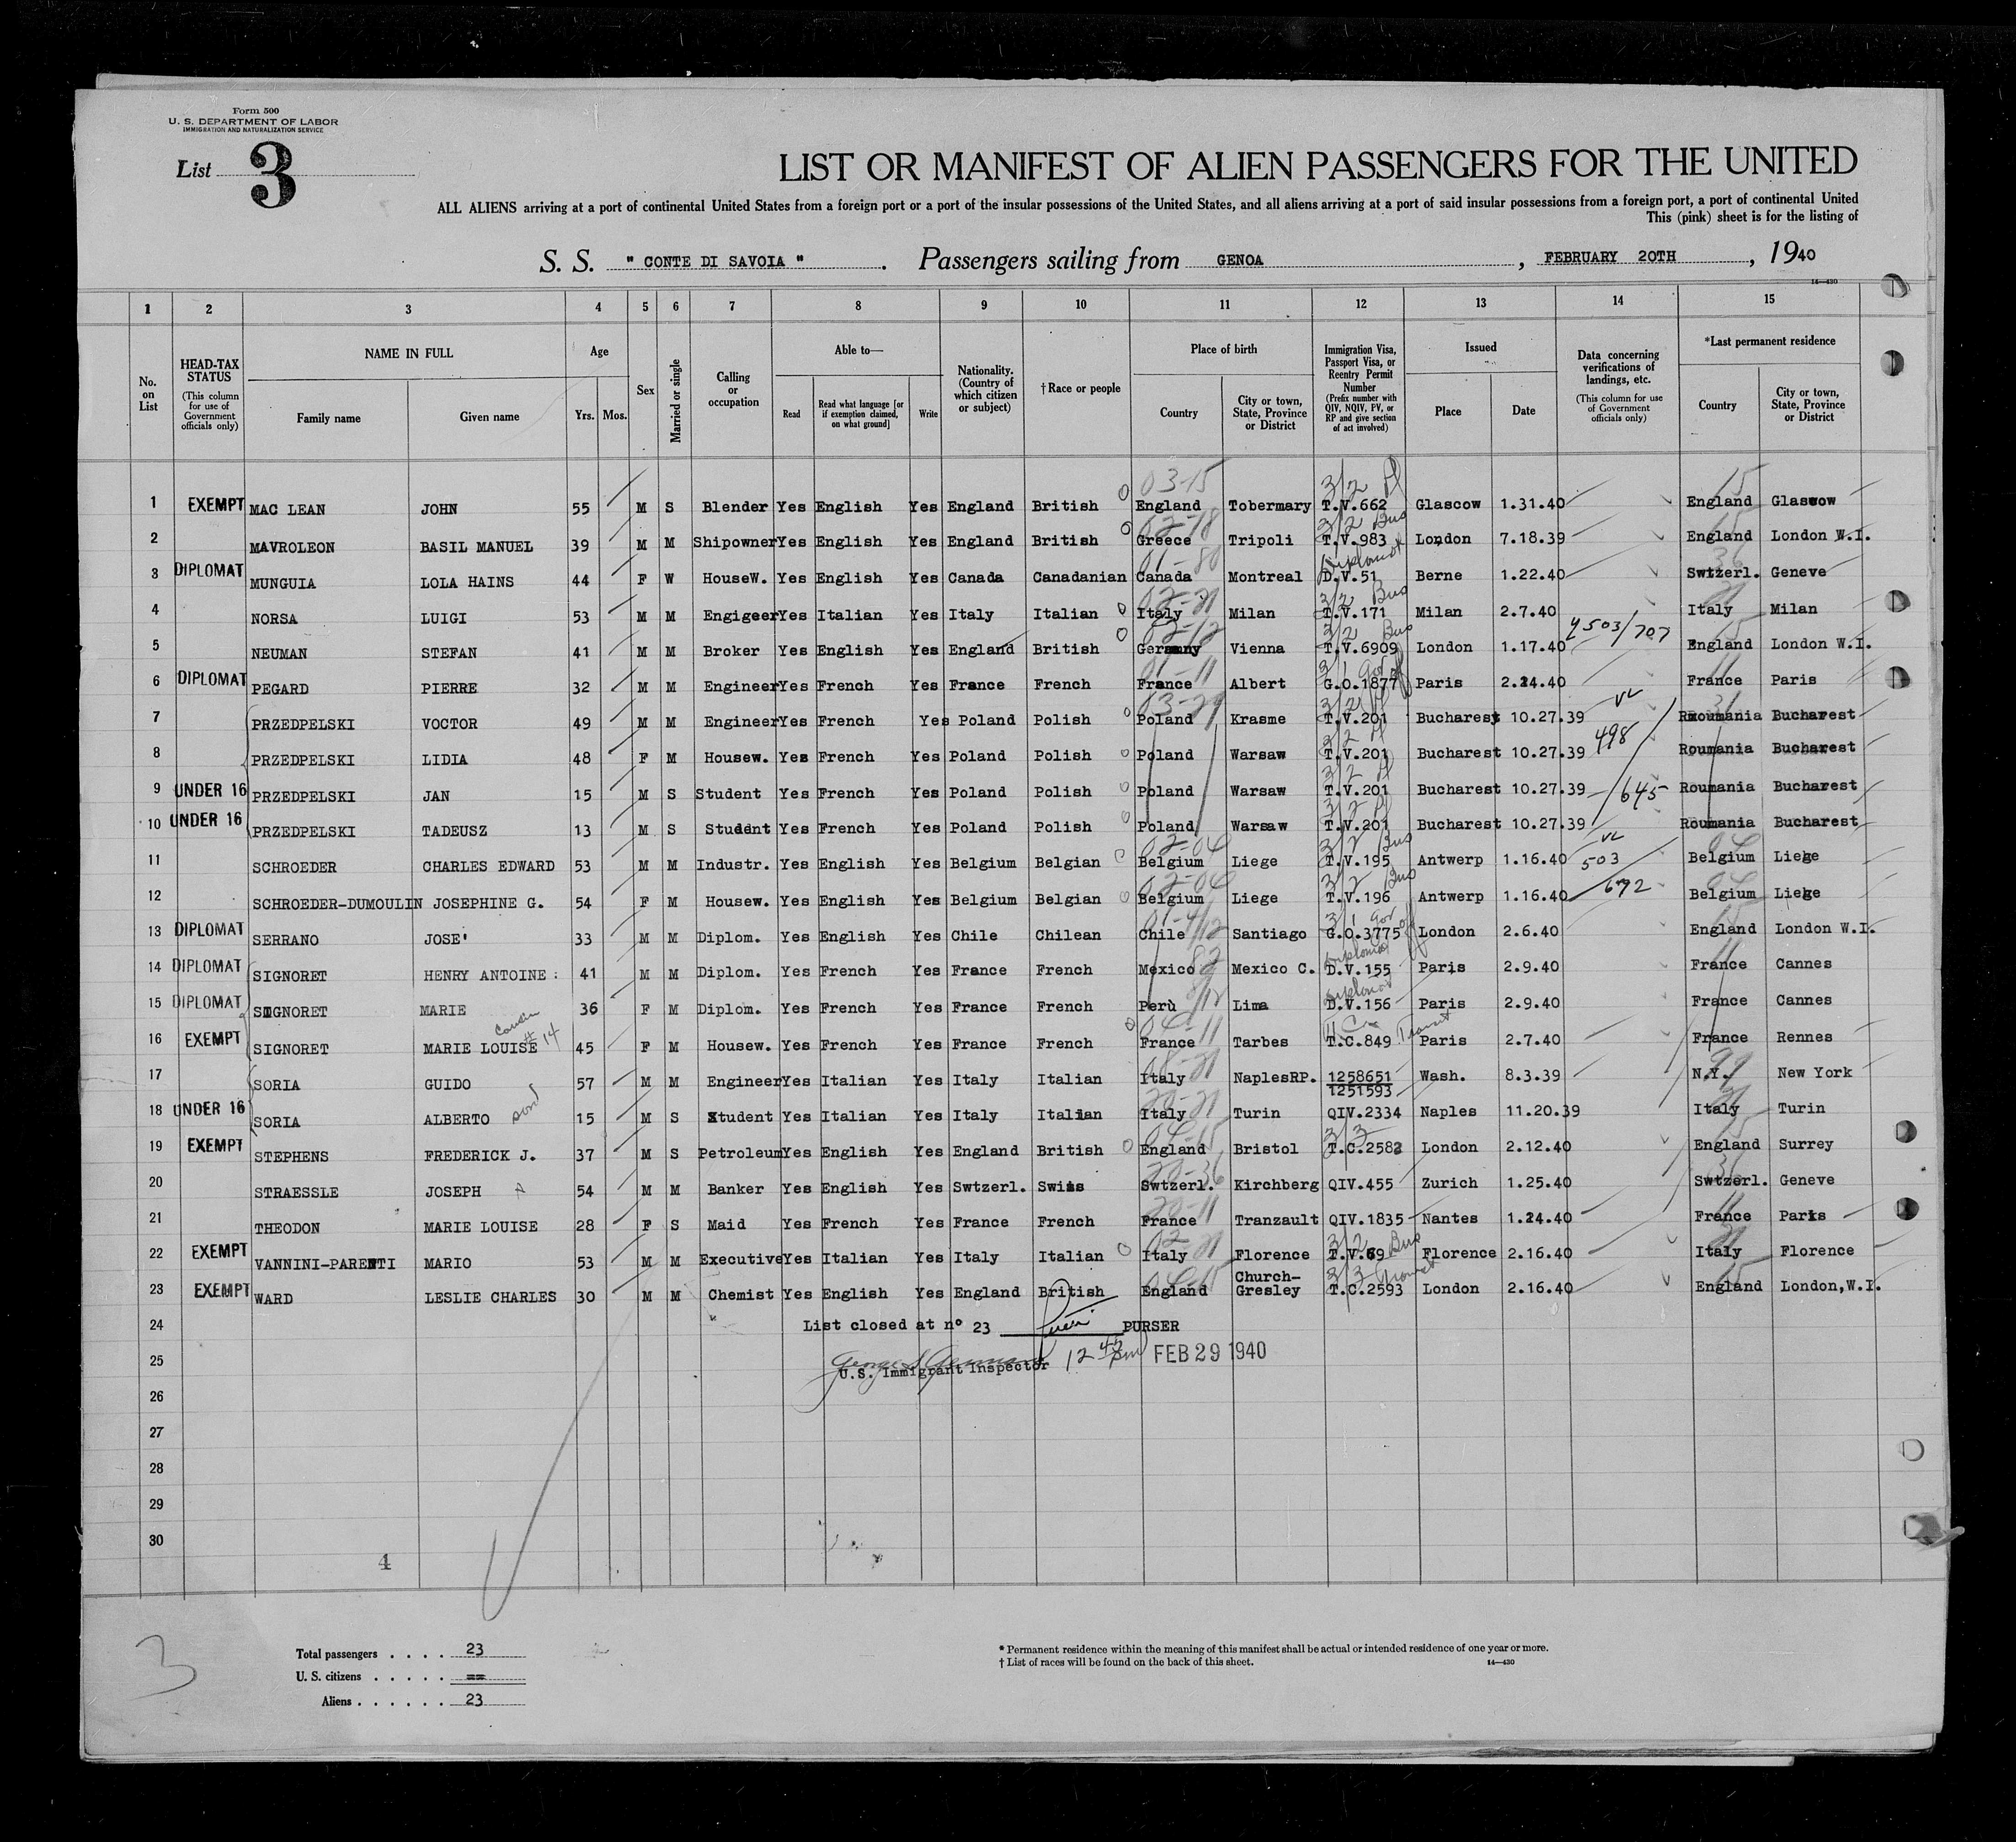 Form 500
U. S. DEPARTMENT OF LABOR
IMMIGRATION AND NATURALIZATION SERVICE
List 3
LIST OR MANIFEST OF ALIEN PASSENGERS FOR THE UNITED
ALL ALIENS arriving at a port of continental United States from a foreign port or a port of the insular possessions of the United States, and all aliens arriving at a port of said insular possessions from a foreign port, a port of continental United
This (pink) sheet is for the listing of
S. S. " CONTE DI SAVOIA " . Passengers sailing from GENOA , FEBRUARY 20TH , 1940
14—430
1 2 3 4 5 6 7 8 9 10 11 12 13 14 15
No. on List
HEAD-TAX STATUS (This column for use of Government officials only)
NAME IN FULL Family name Given name
Age Yrs. Mos.
Sex
Married or single
Calling or occupation
Able to— Read Read what language [or if exemption claimed, on what ground] Write
Nationality. (Country of which citizen or subject)
† Race or people
Place of birth Country City or town, State, Province or District
Immigration Visa, Passport Visa, or Reentry Permit Number (Prefix number with QIV, NQIV, PV, or RP and give section of act involved)
Issued Place Date
Data concerning verifications of landings, etc. (This column for use of Government officials only)
*Last permanent residence Country City or town, State, Province or District
03-15 3/2 Pl 15
1 EXEMPT MAC LEAN JOHN 55 M S Blender Yes English Yes England British England Tobermary T.V.662 Glascow 1.31.40 England Glascow
02-78 3/2 Bus 15
2 MAVROLEON BASIL MANUEL 39 M M Shipowner Yes English Yes England British Greece Tripoli T.V.983 London 7.18.39 England London W.I.
01-80 Diplomat 36
3 DIPLOMAT MUNGUIA LOLA HAINS 44 F W HouseW. Yes English Yes Canada Canadanian Canada Montreal D.V.51 Berne 1.22.40 Swtizerl. Geneve
02-21 3/2 Bus 21
4 NORSA LUIGI 53 M M Engigeer Yes Italian Yes Italy Italian Italy Milan T.V.171 Milan 2.7.40 Italy Milan
02-12 3/2 Bus 503/707 15
5 NEUMAN STEFAN 41 M M Broker Yes English Yes England British Germany Vienna T.V.6909 London 1.17.40 England London W.I.
01-11 3/1 Gov off 11
6 DIPLOMAT PEGARD PIERRE 32 M M Engineer Yes French Yes France French France Albert G.O.1877 Paris 2.14.40 France Paris
03-29 3/2 Pl 31
7 PRZEDPELSKI VOCTOR 49 M M Engineer Yes French Yes Poland Polish Poland Krasme T.V.201 Bucharest 10.27.39 Roumania Bucharest
3/2 Pl 498
8 PRZEDPELSKI LIDIA 48 F M Housew. Yes French Yes Poland Polish Poland Warsaw T.V.201 Bucharest 10.27.39 Roumania Bucharest
3/2 Pl 645
9 UNDER 16 PRZEDPELSKI JAN 15 M S Student Yes French Yes Poland Polish Poland Warsaw T.V.201 Bucharest 10.27.39 Roumania Bucharest
3/2 Pl
10 UNDER 16 PRZEDPELSKI TADEUSZ 13 M S Student Yes French Yes Poland Polish Poland Warsaw T.V.201 Bucharest 10.27.39 Roumania Bucharest
02-04 3/2 Bus 503 04
11 SCHROEDER CHARLES EDWARD 53 M M Industr. Yes English Yes Belgium Belgian Belgium Liege T.V.195 Antwerp 1.16.40 Belgium Liege
02-04 3/2 Bus 692 04
12 SCHROEDER-DUMOULIN JOSEPHINE G. 54 F M Housew. Yes English Yes Belgium Belgian Belgium Liege T.V.196 Antwerp 1.16.40 Belgium Liege
3/1 Gov off 15
13 DIPLOMAT SERRANO JOSE' 33 M M Diplom. Yes English Yes Chile Chilean Chile Santiago G.O.3775 London 2.6.40 England London W.I.
82 Diplomat 11
14 DIPLOMAT SIGNORET HENRY ANTOINE 41 M M Diplom. Yes French Yes France French Mexico Mexico C. D.V.155 Paris 2.9.40 France Cannes
Diplomat
15 DIPLOMAT SIGNORET MARIE 36 F M Diplom. Yes French Yes France French Perù Lima D.V.156 Paris 2.9.40 France Cannes
cousin # 14 04-11 Transit
16 EXEMPT SIGNORET MARIE LOUISE 45 F M Housew. Yes French Yes France French France Tarbes T.C.849 Paris 2.7.40 France Rennes
18-21 99
17 SORIA GUIDO 57 M M Engineer Yes Italian Yes Italy Italian Italy Naples RP. 1258651 Wash. 8.3.39 N.Y. New York
1251593
son 20-21 21
18 UNDER 16 SORIA ALBERTO 15 M S Student Yes Italian Yes Italy Italian Italy Turin QIV.2334 Naples 11.20.39 Italy Turin
04-15 3/3 15
19 EXEMPT STEPHENS FREDERICK J. 37 M S Petroleum Yes English Yes England British England Bristol T.C.2582 London 2.12.40 England Surrey
20-36 36
20 STRAESSLE JOSEPH 54 M M Banker Yes English Yes Swtzerl. Swiss Swtzerl. Kirchberg QIV.455 Zurich 1.25.40 Swtzerl. Geneve
20-11 11
21 THEODON MARIE LOUISE 28 F S Maid Yes French Yes France French France Tranzault QIV.1835 Nantes 1.24.40 France Paris
02 21 3/2 Bus 21
22 EXEMPT VANNINI-PARENTI MARIO 53 M M Executive Yes Italian Yes Italy Italian Italy Florence T.V.69 Florence 2.16.40 Italy Florence
04-15 3/3 Transit 15
23 EXEMPT WARD LESLIE CHARLES 30 M M Chemist Yes English Yes England British England Church-Gresley T.C.2593 London 2.16.40 England London,W.I.
24 List closed at nº 23 PURSER
25 12 45 pm FEB 29 1940
U.S. Immigrant Inspector
26
27
28
29
30
4
3
Total passengers . . . . 23
U. S. citizens . . . . . ==
Aliens . . . . . . 23
* Permanent residence within the meaning of this manifest shall be actual or intended residence of one year or more.
† List of races will be found on the back of this sheet.
14—430